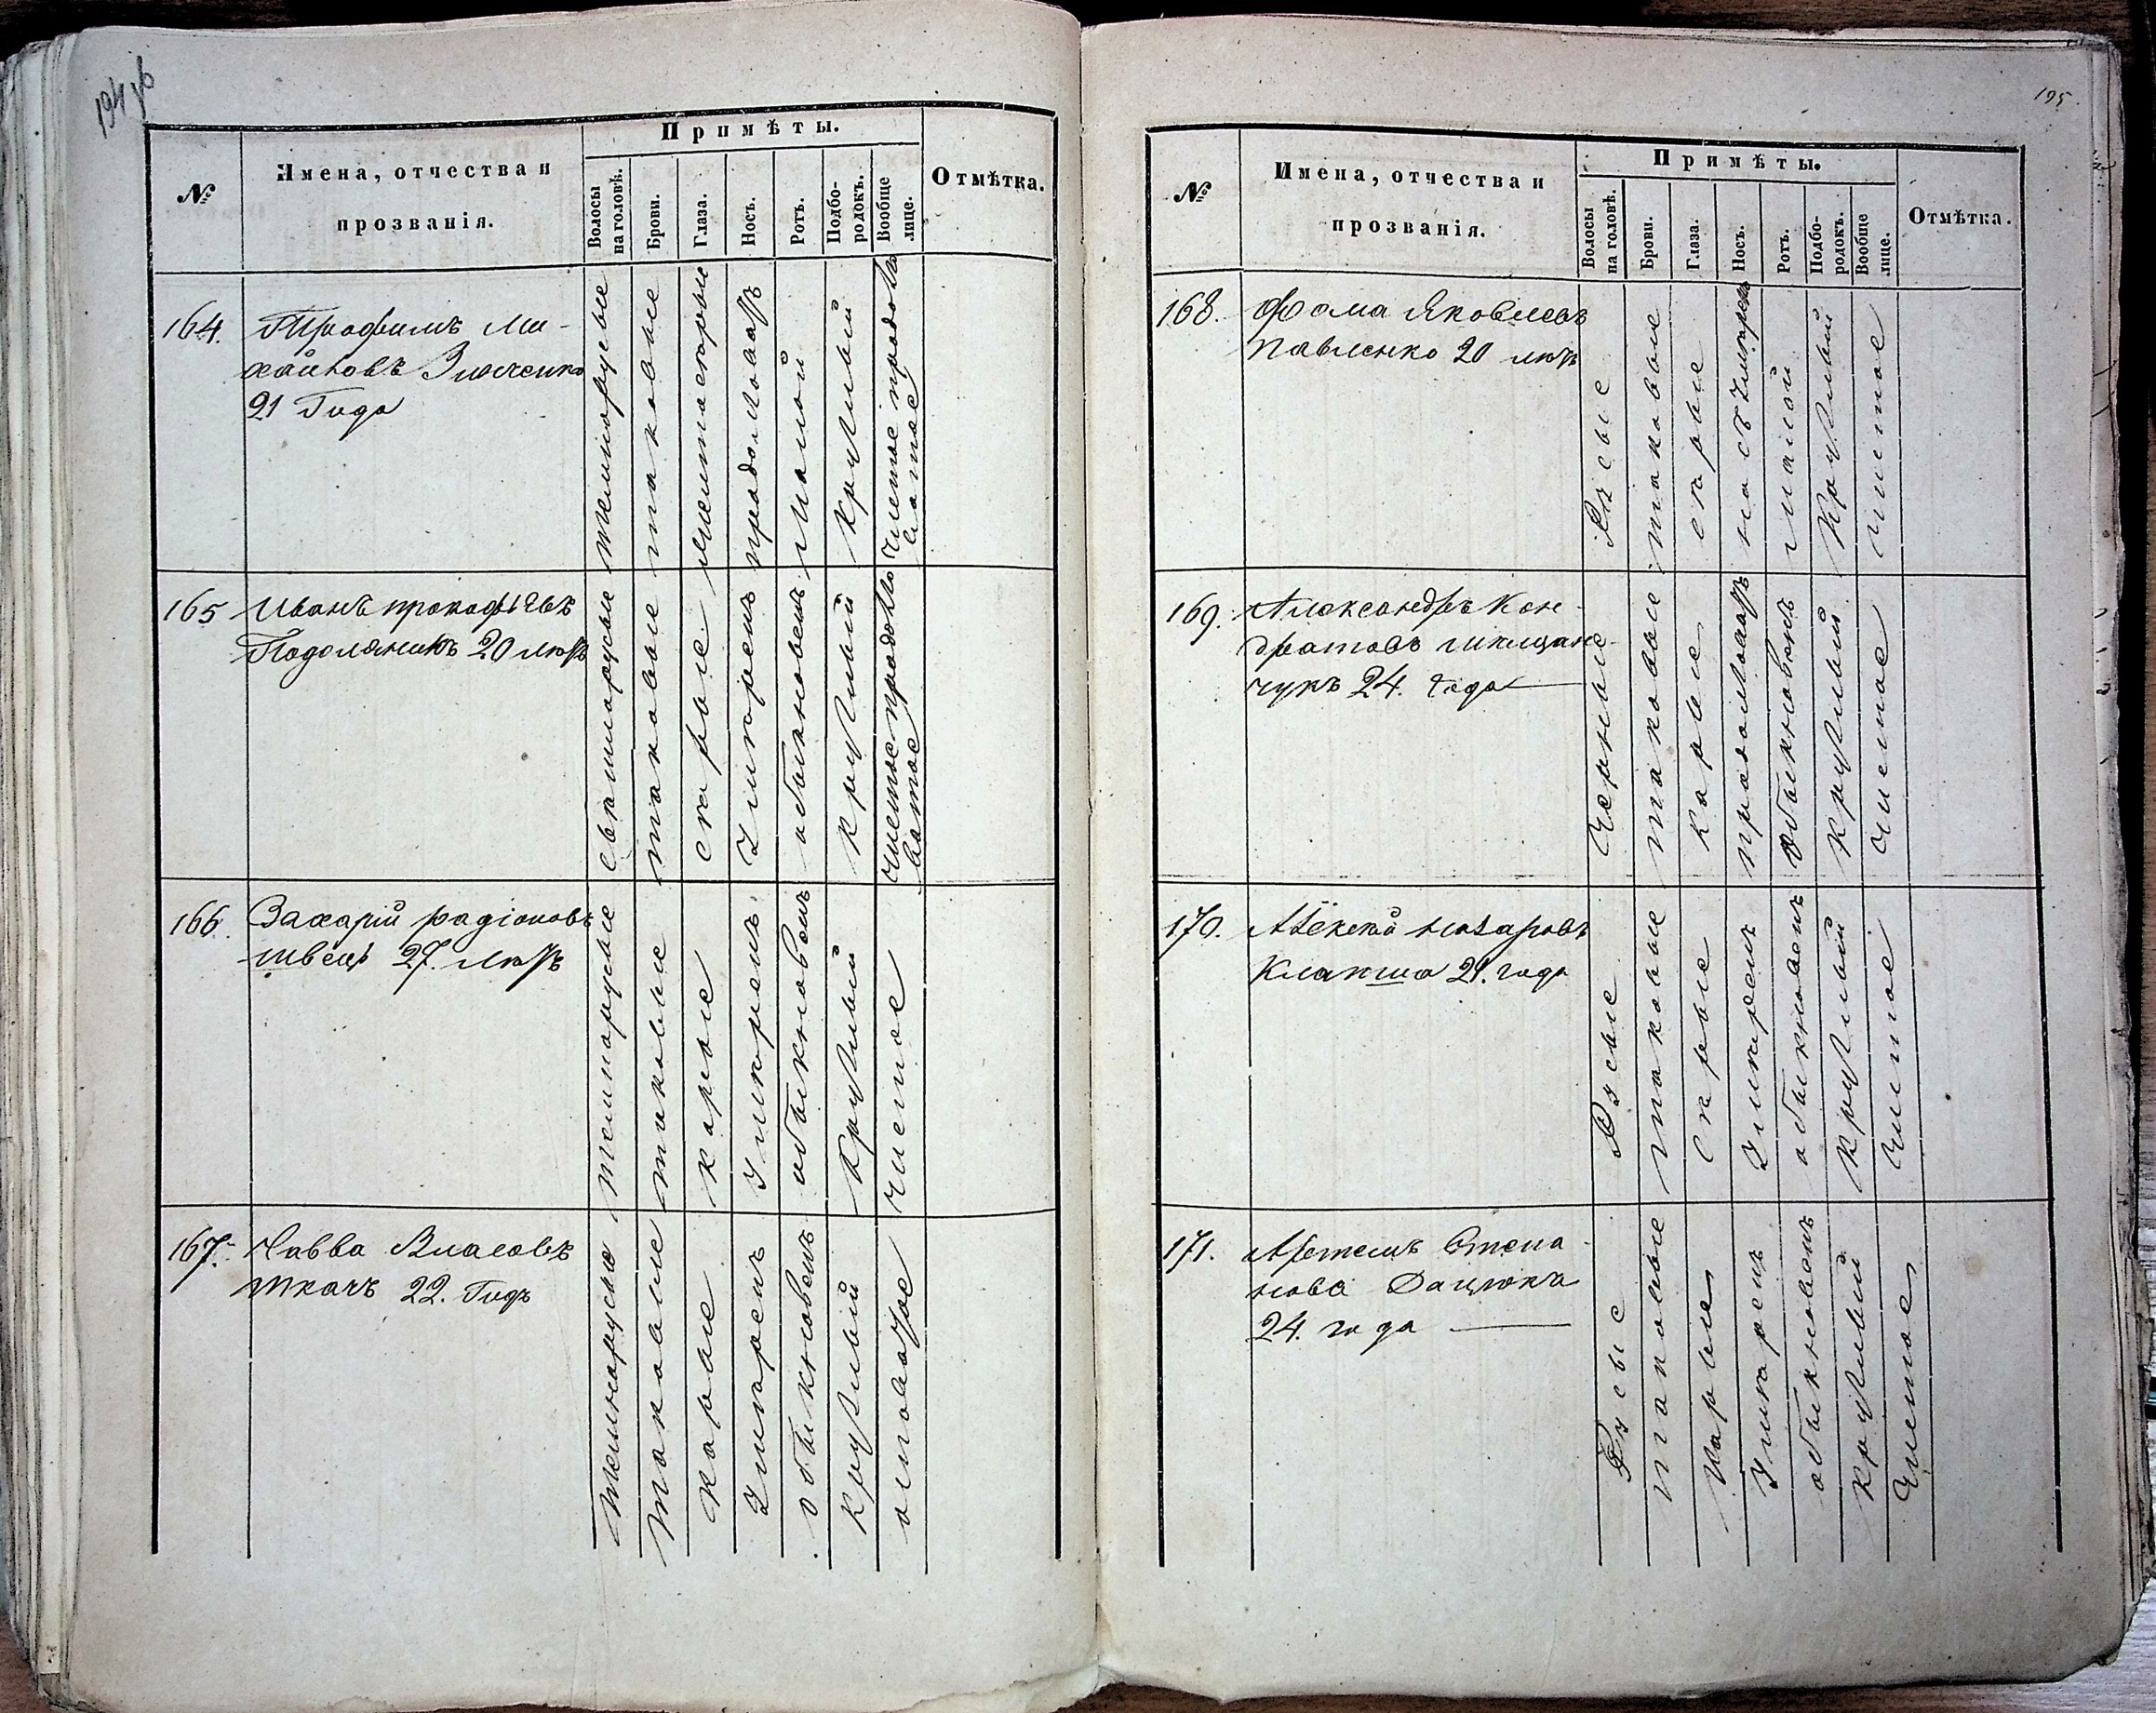 194 об
№
Имена, отчества и
прозванія.
Примѣты.
Волосы
на головѣ.
Брови.
Глаза.
Носъ.
Ротъ.
Подбо-
родокъ.
Вообще
лице.
Отмѣтка.
164.
Трофимъ Ми-
хайловъ
21 Года
темнорусые
таковые
серые
малой
круглый
чистое продолго
ватое
165
Иванъ прокофьевъ
Подолянюкъ 20 летъ
светлорусые
таковые
серые
Умеренъ
обыкновенъ
круглый
чистое продолго
ватое
166.
Захарій радіоновъ
швецъ 27. летъ
темнорусые
таковые
карые
Умеренъ
обыкновенъ
круглый
чистое
167.
Савва Власовъ
ткачъ 22. Годъ
темнорусые
таковые
карые
Умеренъ
обыкновенъ
круглый
195.
№
Имена, отчества и
прозванія.
Примѣты.
Волосы
на головѣ.
Брови.
Глаза.
Носъ.
Ротъ.
Подбо-
родокъ.
Вообще
лице.
Отмѣтка.
168.
Фома Яковлевъ
Павленко 20 летъ
Русые
таковые
серые
малой
Круглый
чистое
169.
Александръ Кон-
дратовъ
чукъ 24. Года
Черные
таковые
карые
продолговатъ
Обыкновенъ
круглый
чистое
170.
Алексей назаровъ
Клапша 21. года
Русые
таковые
Серые
Умеренъ
обыкновенъ
Круглый
Чистое
171.
Артемъ Степа-
новъ Дацюкъ
24. года
Русые
таковые
Карые
Умеренъ
обыкновенъ
круглый
Чистое